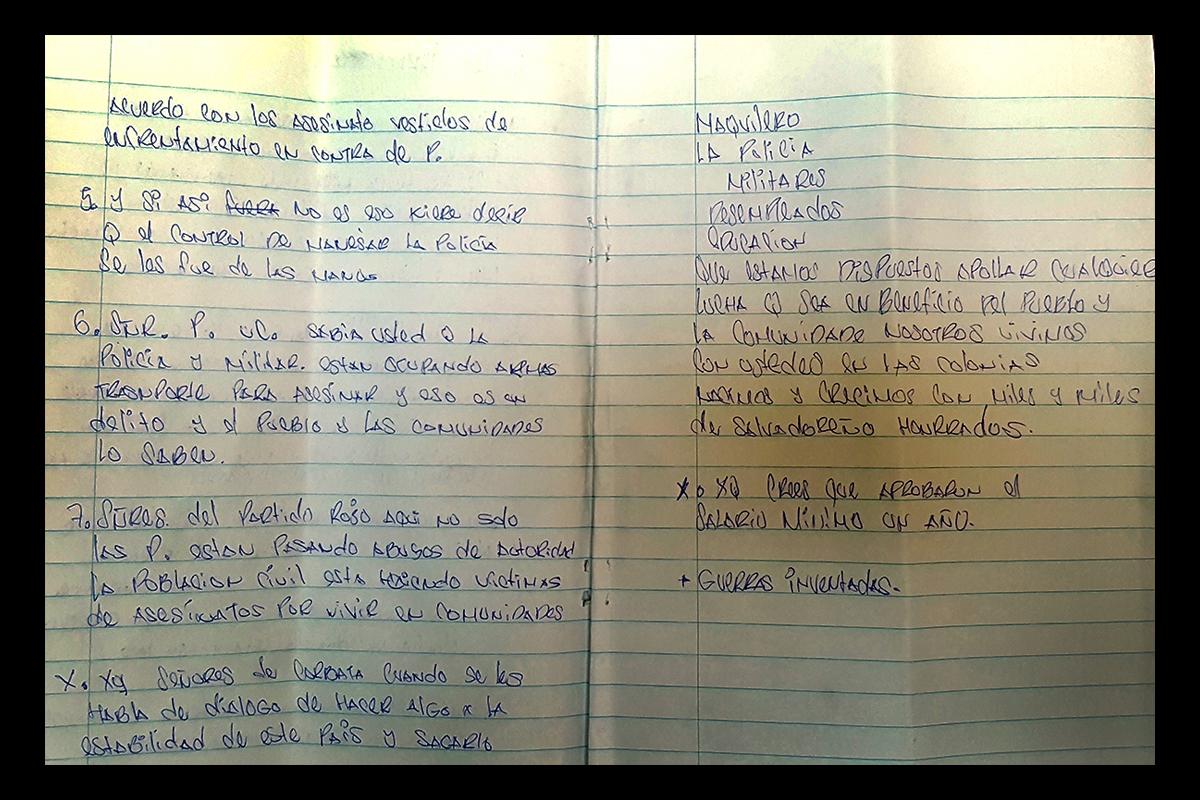 Acuerdo con los asesinato vestidos de
enfrentamiento en contra de P.
5. y si asi fuera no es eso kiere decir
Q el control de manejar la policia
se les fue de las manos
6. Sñr. P. uc. sabia usted Q la
Policia y Militar. estan ocupando armas
trasnporte para asesinar y eso es un
delito y el pueblo y las comunidades
lo saben.
7. Sñres. del Partido Rojo aqui no solo
las P. estan pasando abusos de autoridad
la poblacion civil esta siendo victimas
de asesinatos por vivir en comunidades
X. XQ señores de corbata cuando se les
habla de dialogo de hacer algo x la
estabilidad de este Pais y sacarlo
Maquilero
La Policia
Militares
Desempleados
Educacion
Que estamos dispuestos apollar cualquier
lucha Q sea en beneficio del pueblo y
la comunidade nosotros vivimos
con ustedes en las colonias
nacimos y crecimos con miles y miles
de salvadoreño honrrados.
X o XQ crees que aprobaron el
salario minimo un año.
+ Guerras inventadas.